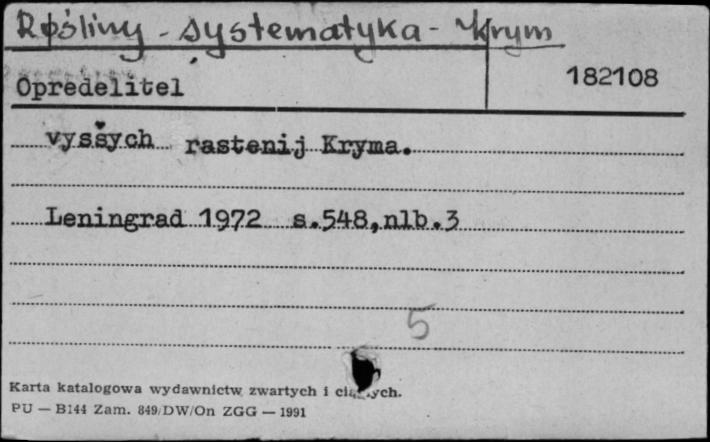 Rośliny - systematyka - Krym
Opredelitel
182108
vyšsych rastenij Kryma.
Leningrad 1972 s.548,nlb.3
5
Karta katalogowa wydawnictw zwartych i
PU — B144 Zam. 849/DW/On ZGG — 1991